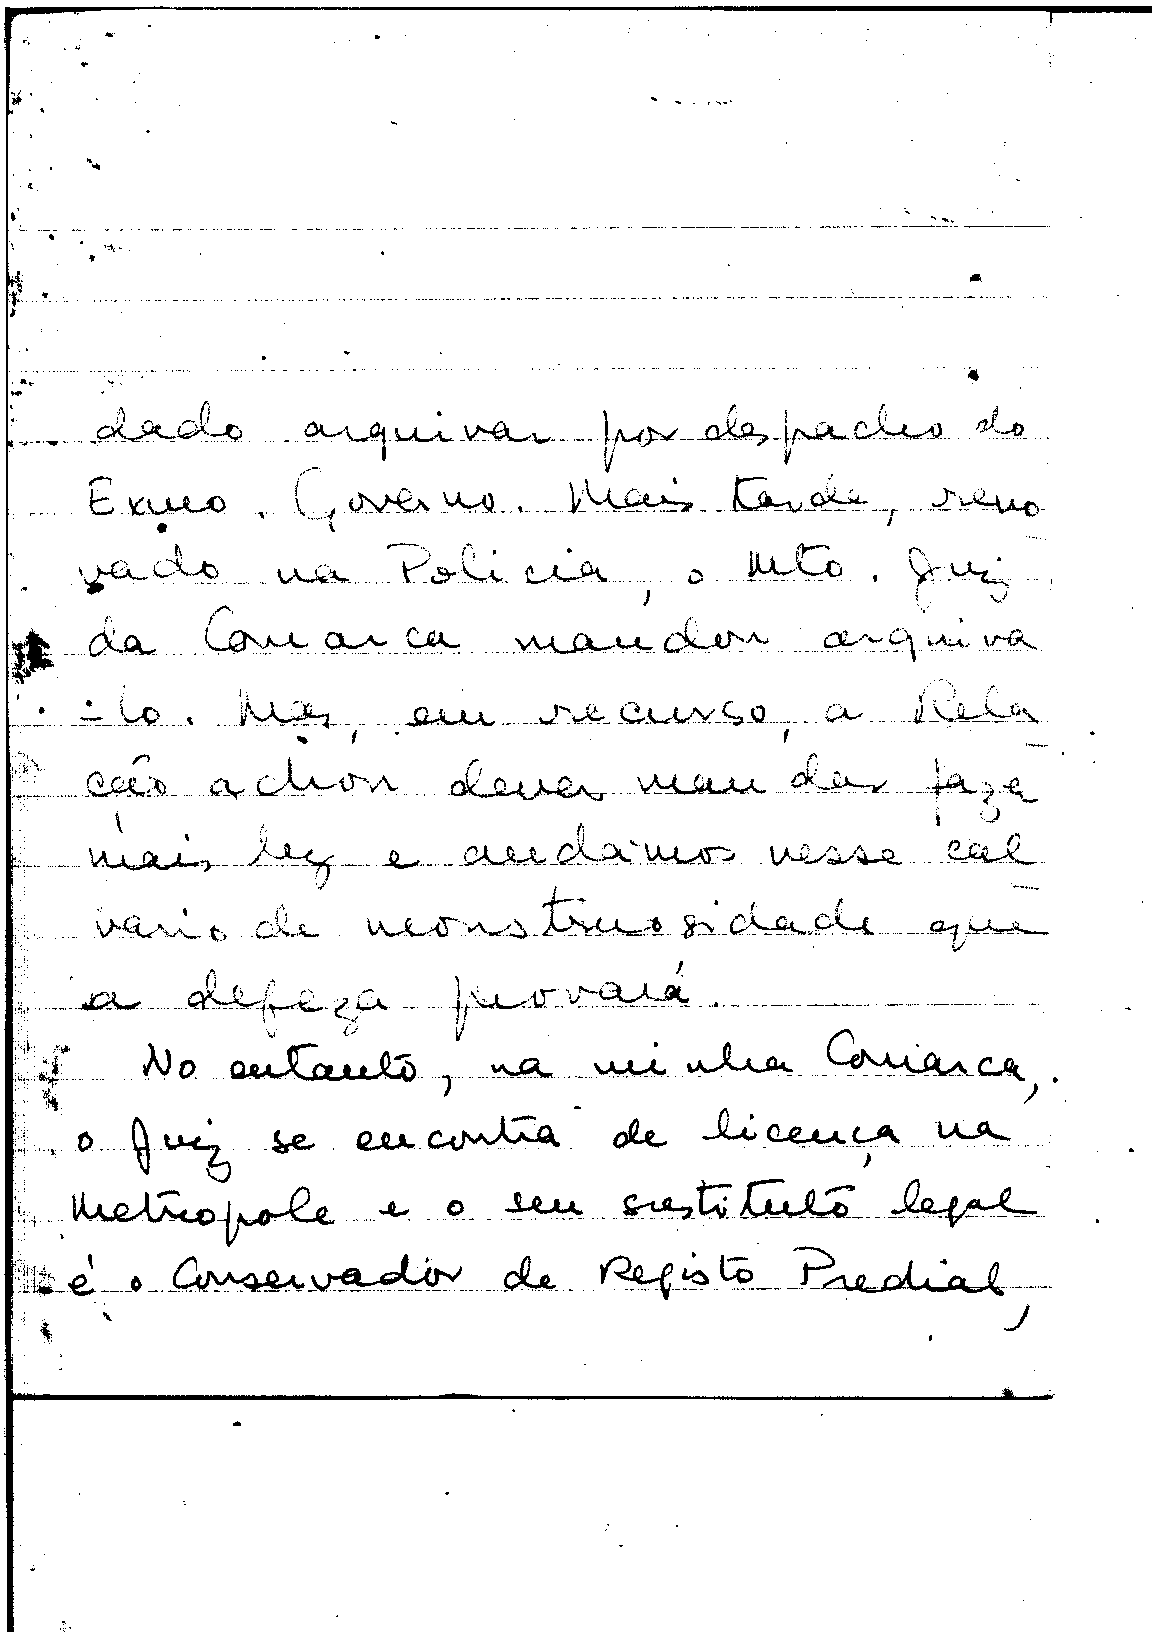 dado arquivar por despacho do
Exmo. Governo. Mais tarde, reno
vado na Policia, o Mto. Juiz
da Comarca mandou arquiva
-lo. Mas, em recurso, a Rela
ção achou dever mandar fazer
mais luz e andámos nesse cal
vario de monstruosidade que
a defeza provará.
No entanto, na minha Comarca,
o Juiz se encontra de licença na
Metropole e o seu sustituto legal
é o Conservador de Registo Predial,